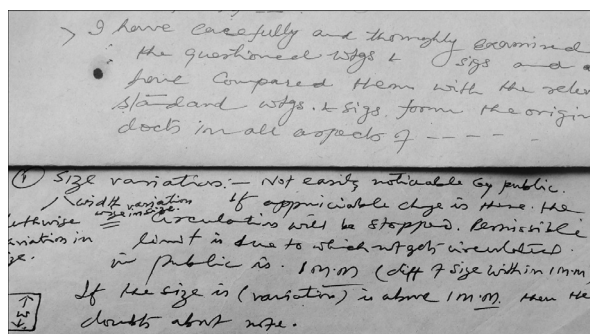 > I have carefully and thoroughly examined
the questioned wtgs & sigs and
have compared them with the
standard wtgs. & sigs. form the
docts in all aspects of - - - - -
① Size variation:- Not easily noticable by public.
width variation If appriciable chge is there. the
wise in size. = Circulation will be stopped. Permissible
limit is due to which not gets circulated
in public is. 1 m.m (diff of size within 1 m.m
If the size is (variation) is above 1 m.m. then the
doubts about note.